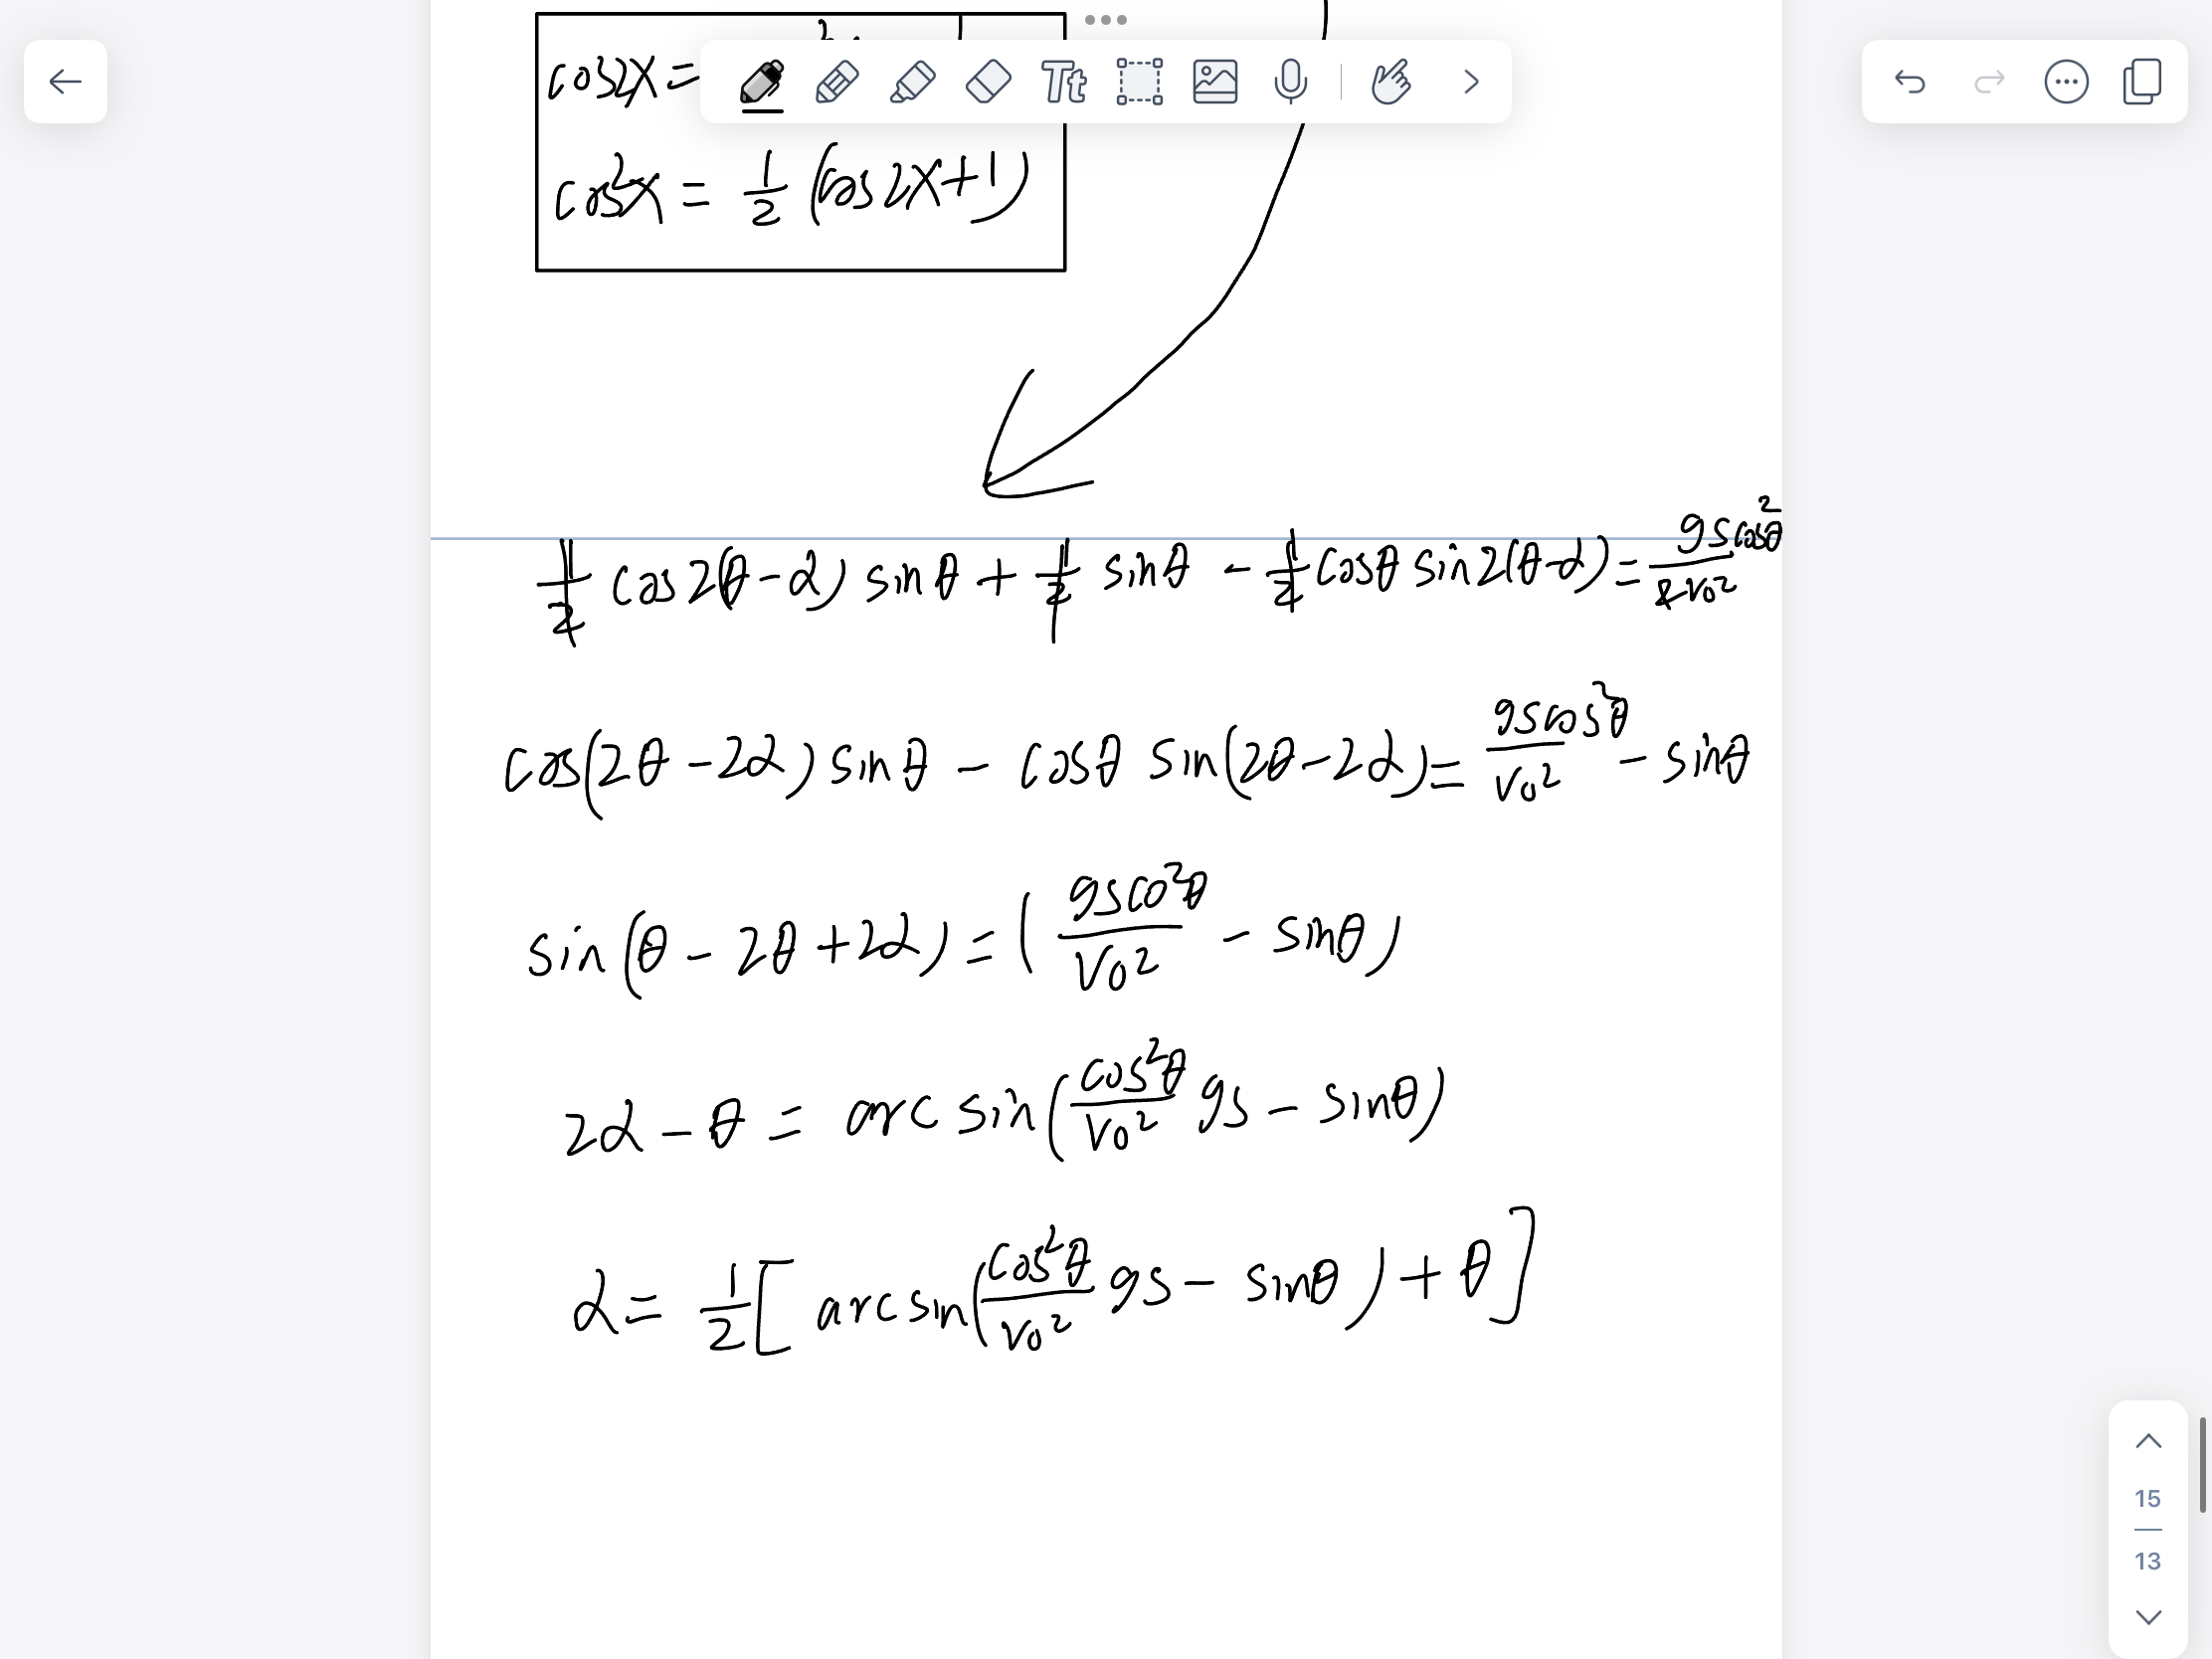 cos2x =
Tt
cos²x = 1/2 (cos2x+1)
1/2 cos2(θ-α) sinθ + 1/2 sinθ - 1/2 cosθ sin2(θ-α) = gscos²θ/2v₀²
cos(2θ-2α) sinθ - cosθ sin(2θ-2α) = gscos²θ/v₀² - sinθ
sin(θ - 2θ + 2α) = ( gsco²θ/v₀² - sinθ)
2α - θ = arc sin( cos²θ/v₀² gs - sinθ)
α = 1/2 [ arcsin( cos²θ/v₀² gs - sinθ) + θ ]
15
13